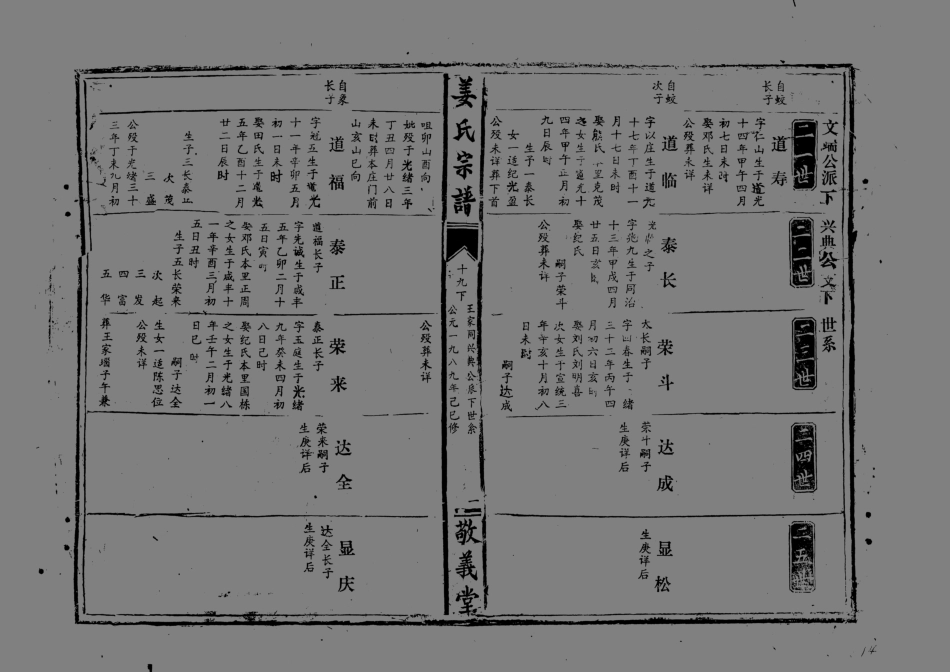 文瑞公派下 兴典公文下世系
二一世
二二世
二三世
二四世
二五世
自蛟
长子
道寿
字仁山生于道光
十四年甲午四月
初七日未时
娶邓氏生未详
公殁葬未详
自蛟
次子
道临
字以庄生于道光
十七年丁酉十一
月十七日未时
娶熊氏
之女生于道光十
四年甲午正月初
九日辰时
生子一泰长
女一适纪光盈
公殁未详葬下首
咀卯山酉向
妣殁于光绪三年
丁丑四月廿八日
未时葬本庄门前
山亥山巳向
自象
长子
道福
字冠五生于道光
十一年辛卯五月
初一日未时
娶田氏生于道光
五年乙酉十二月
廿二日辰时
生子三长泰正
次茂
三盛
公殁于光绪三十
三年丁未九月初
泰长
之子
字兆九生于同治
十三年甲戌四月
廿五日亥时
娶纪氏
嗣子荣斗
公殁葬未详
泰正
道福长子
字先诚生于咸丰
五年乙卯二月十
五日寅时
娶邓氏本里正周
之女生于咸丰十
一年辛酉三月初
五日丑时
生子五长荣来
次起
三发
四富
五华
荣斗
太长嗣子
三十二年丙午四
月初六日亥时
娶刘氏刘明喜
次女生于宣统三
年辛亥十月初八
日未时
嗣子达成
公殁葬未详
荣来
泰正长子
字五庭生于光绪
九年癸未四月初
八日己时
娶纪氏本里国栋
之女生于光绪八
年壬午二月初一
日巳时
嗣子达全
生女一适陈思位
公殁未详
葬王家瑙子午兼
达成
荣斗嗣子
生庚详后
达全
荣来嗣子
生庚详后
显松
生庚详后
显庆
达全长子
生庚详后
姜氏宗谱
十九下
王家同兴典公泉下世系
公元一九八九年己巳修
二
敬义堂
14